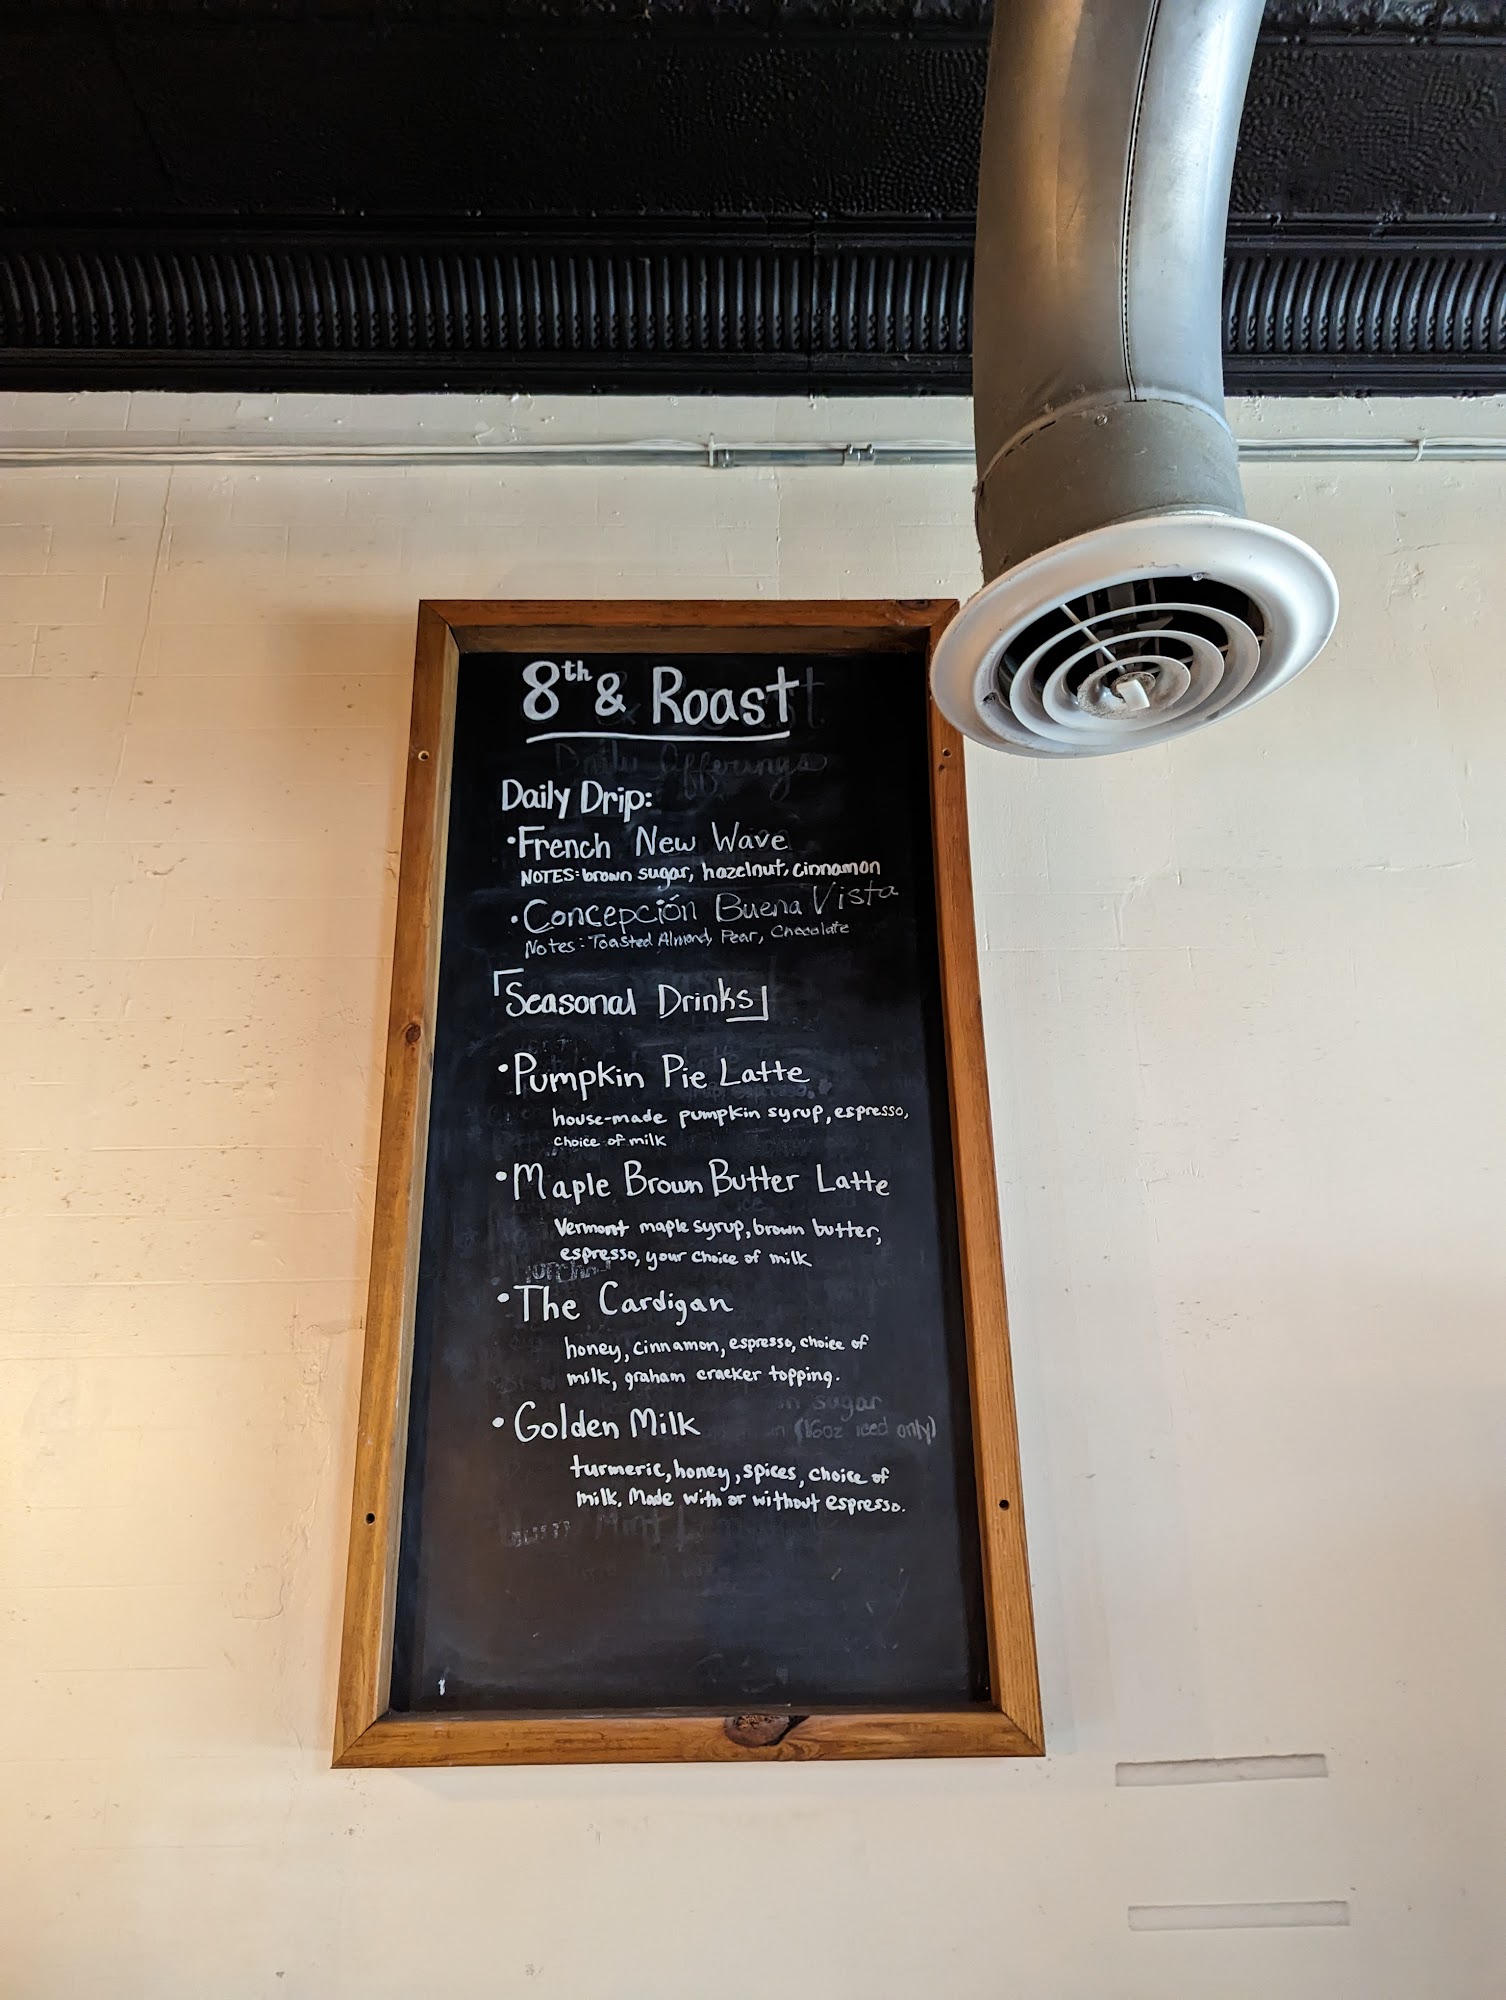 8th & Roast
Daily Offerings
Daily Drip:
•French New Wave
NOTES: brown sugar, hazelnut, cinnamon
•Concepción Buena Vista
Notes: Toasted Almond, Pear, Chocolate
「Seasonal Drinks」
•Pumpkin Pie Latte
house-made pumpkin syrup, espresso,
choice of milk
•Maple Brown Butter Latte
Vermont maple syrup, brown butter,
espresso, your choice of milk
•The Cardigan
honey, cinnamon, espresso, choice of
milk, graham cracker topping.
sugar
•Golden Milk
(16oz iced only)
turmeric, honey, spices, choice of
milk. Made with or without espresso.
Mint